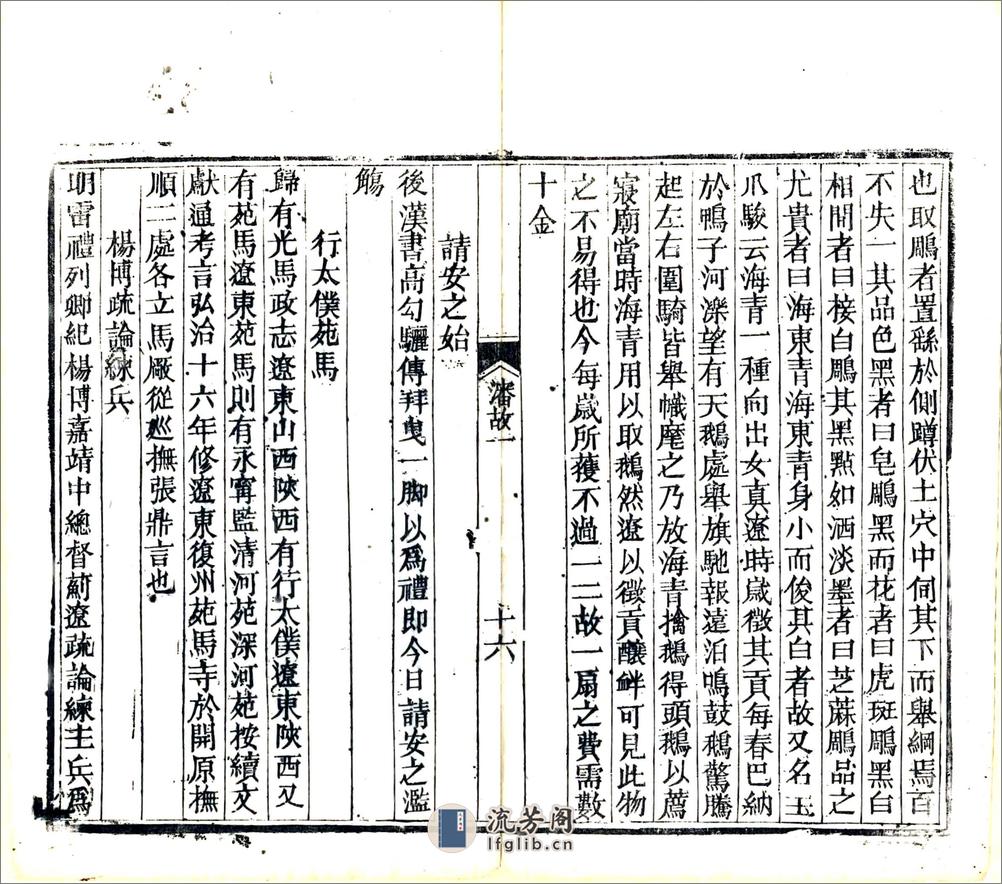 也取鵰者置繇於側蹲伏土穴中伺其下而舉綱焉百
不失一其品色黑者曰皂鵰黑而花者曰虎斑鵰黑白
相間者曰接白鵰其黑點如洒淡墨者曰芝蔴鵰品之
尤貴者曰海東青海東青身小而俊其白者故又名玉
爪駿云海青一種向出女真遼時歲徵其貢每春巴納
於鴨子河濼望有天鵝處舉旗馳報遠泊鳴鼓鵝驚騰
起左右圍騎皆舉幟麾之乃放海青擒鵝得頭鵝以薦
寢廟當時海青用以取鵝然遼以徵貢釀衅可見此物
之不易得也今每歲所獲不過一二故一扇之費需數
十金
瀋故一
十六
請安之始
後漢書高勾驪傳拜曳一脚以爲禮即今日請安之濫
觴
行太僕苑馬
歸有光馬政志遼東山西陝西有行太僕遼東陝西又
有苑馬遼東苑馬則有永寗監清河苑深河苑按續文
獻通考言弘治十六年修遼東復州苑馬寺於開原撫
順二處各立馬厰從巡撫張鼎言也
楊博疏論練兵
明雷禮列卿紀楊博嘉靖中總督薊遼疏論練主兵爲
流芳阁
lfglib.cn